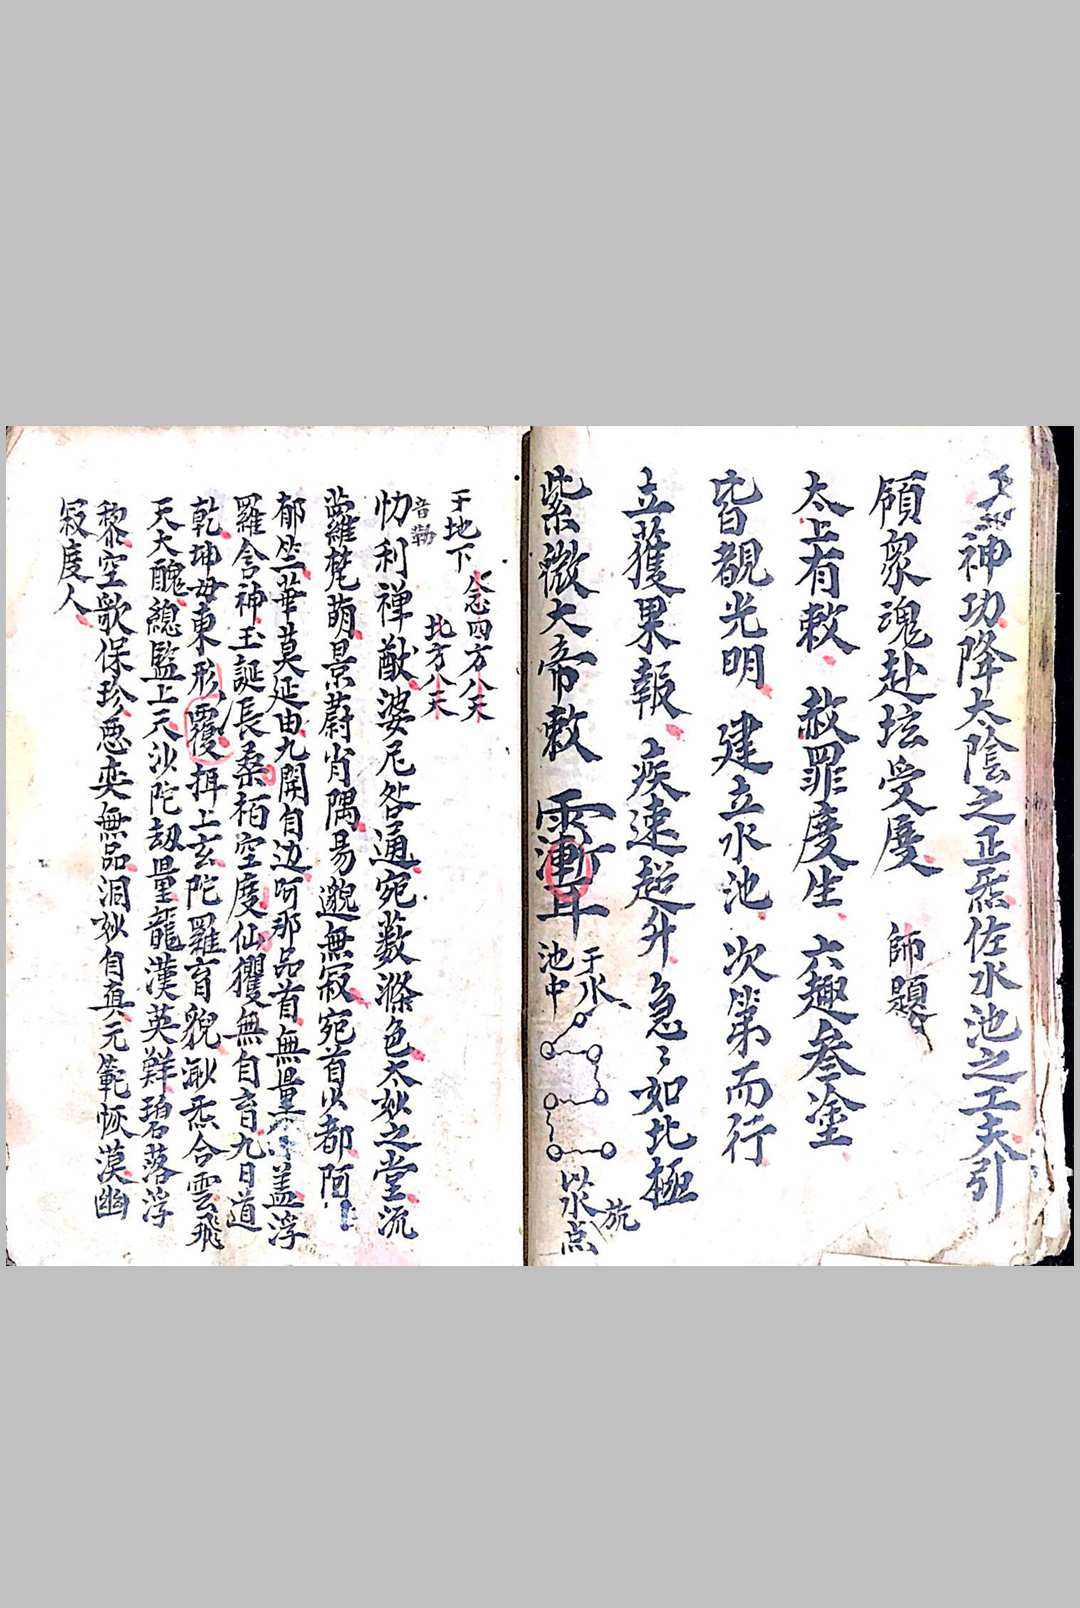 神功降太陰之正炁佐水池之工夫引
領眾魂赴坛受度 師題
太上有敕 赦罪度生 六趣叁塗
皆覩光明 建立水池 次第而行
立獲果報 疾速超升 急〻如北極
紫微大帝敕
于水
池中
以水点
于地下
念四方八天
北方八天
音勒
忉利禅猷婆尼咎通宛藪滌色太妙之堂流
蘿梵萌景蔚肖隅易邈無寂宛首少都阿
郁竺華莫延由九開自边阿那品首無量 盖浮
羅合神玉誕長桑栢空度仙玃無自育九日道
乾坤毋東形覆揖上玄陀羅育貌渺炁合雲飛
天大醜總監上天沙陀劫量龍漢英鮮碧落浮
黎空歌保珍悪奕無品洞妙自真元範恢漠幽
寂度人